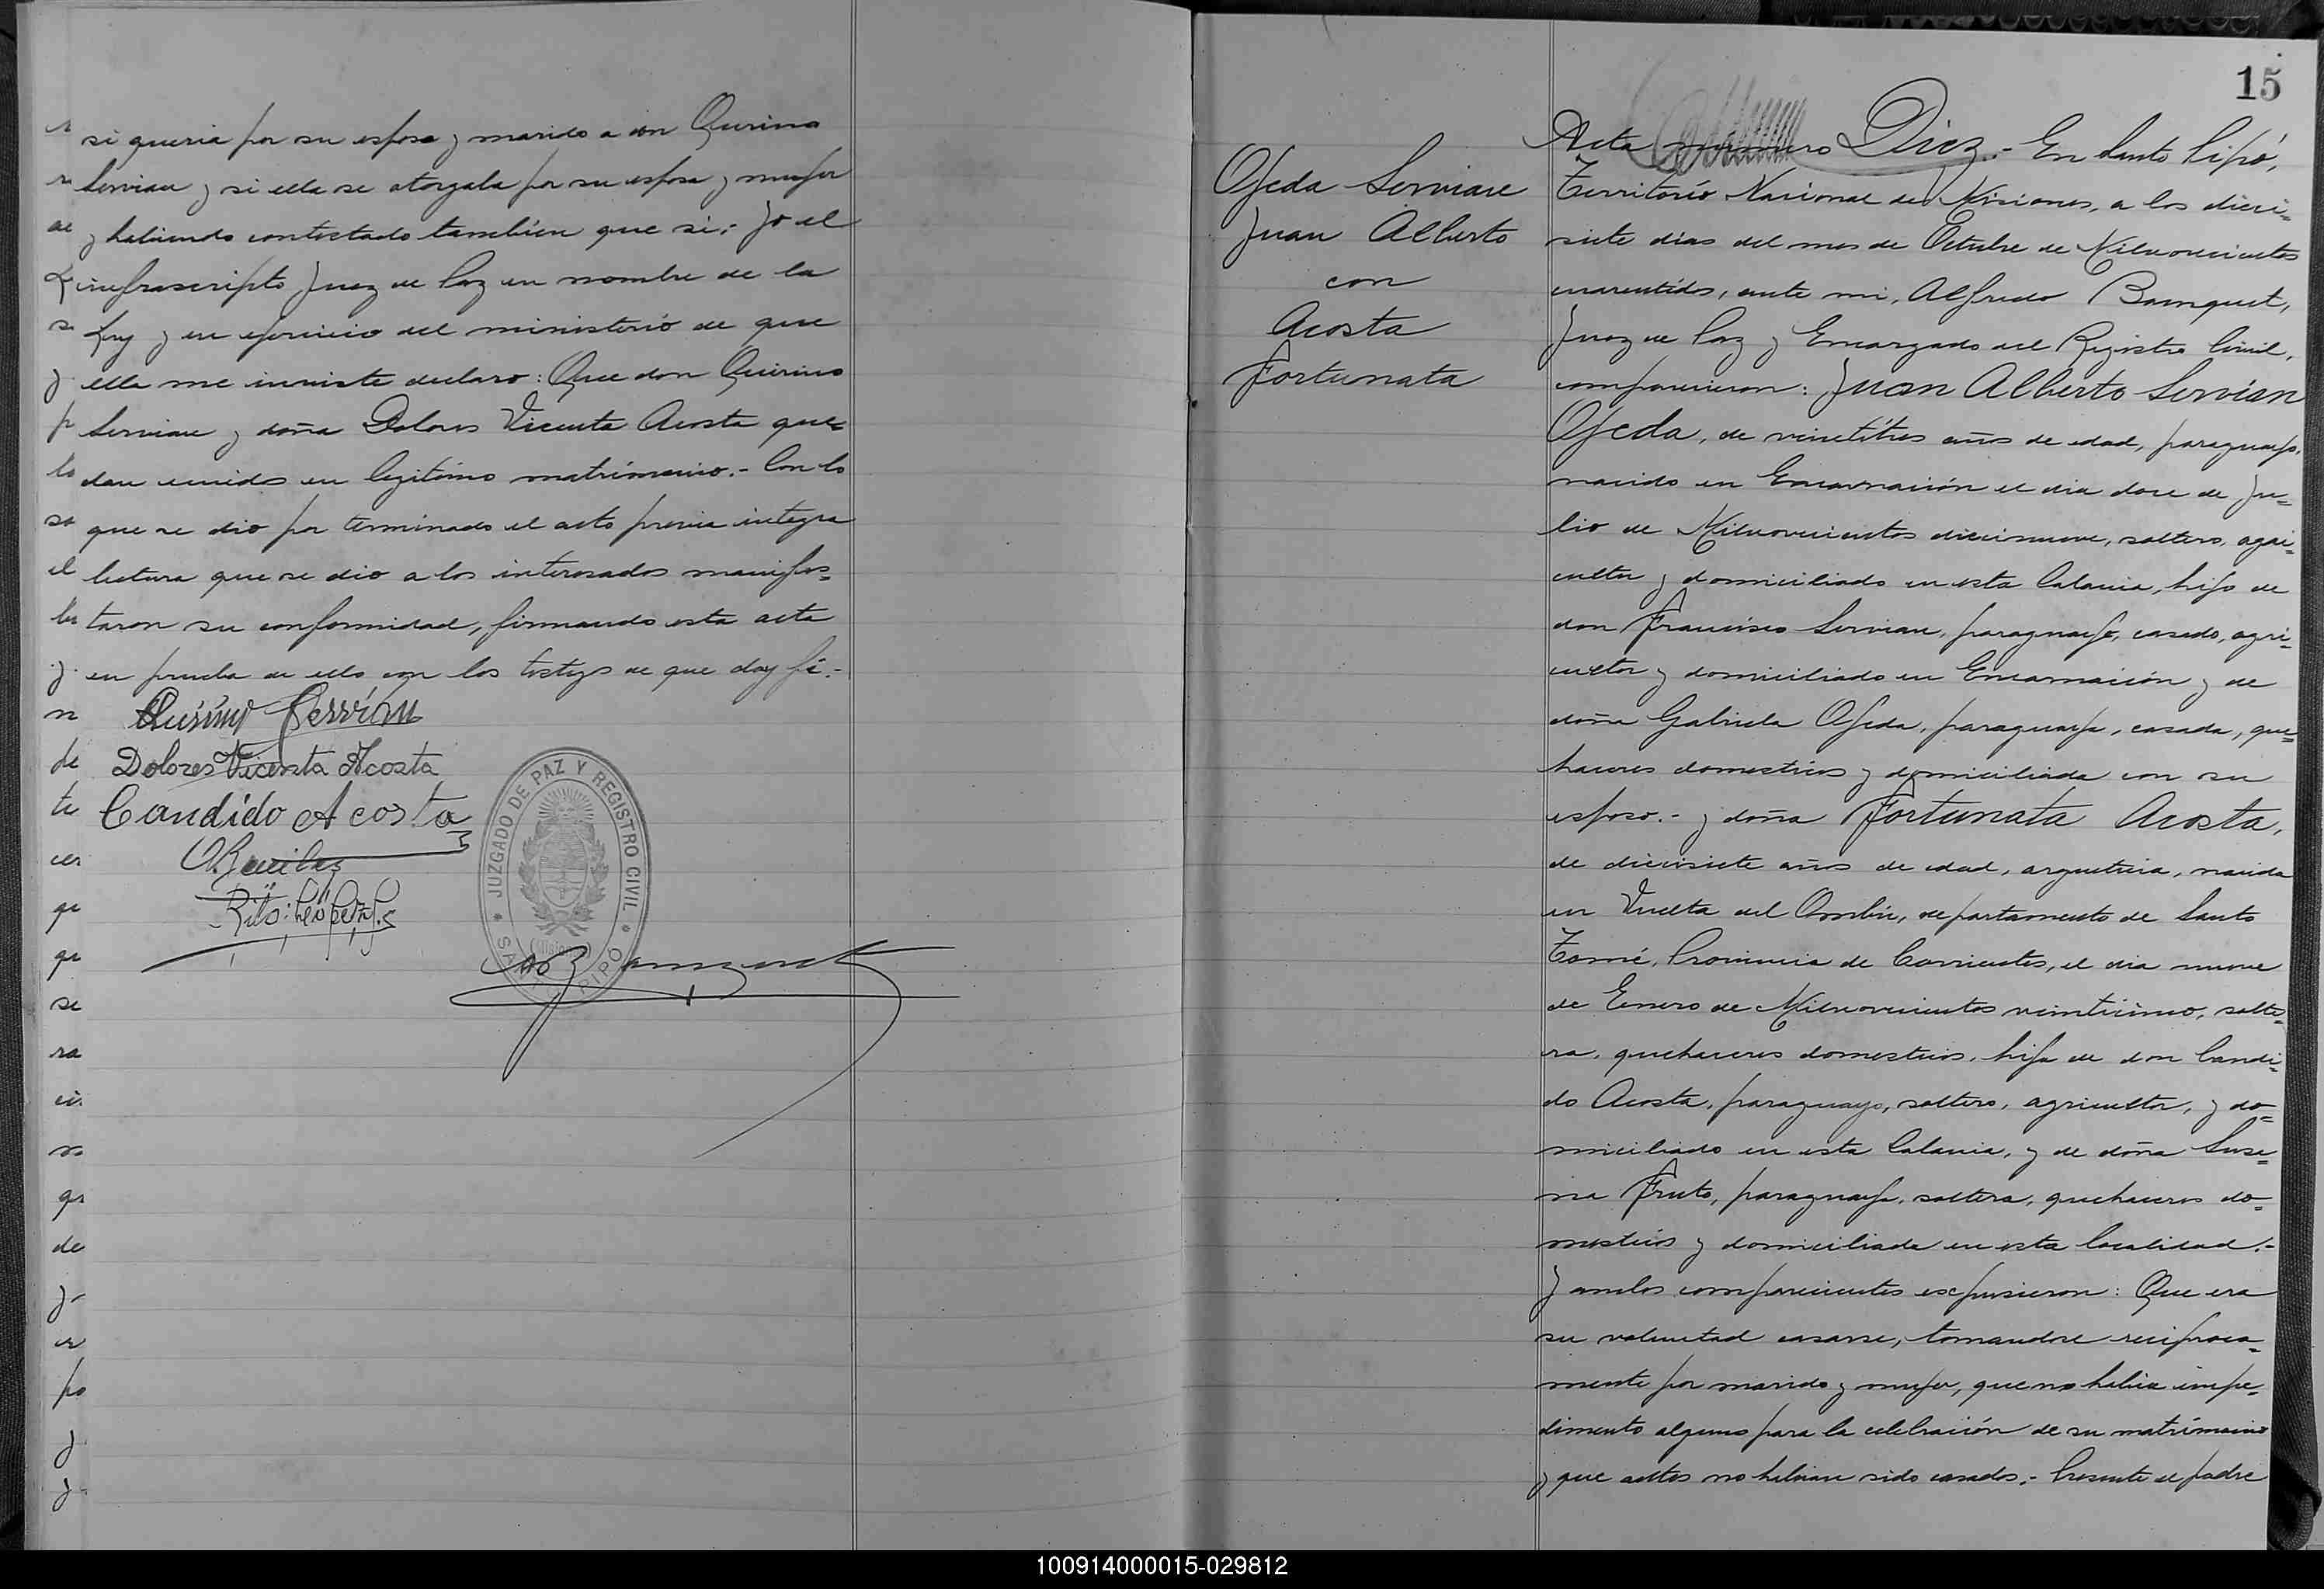 si queria por su esposo y marido a don Quirino
Servian y si ella se otorgaba por su esposa y mujer
y habiendo contestado tambíen que si.- Yo el
infrascripto Juez de Paz en nombre de la
Ley y en ejercicio del ministerio de que
ella me inviste declaro: Que don Quirino
Servian y doña Dolores Vicenta Acosta que=
dan unidos en legitimo matrimonio.- Con lo
que se dio por terminado el acto previa integra
lectura que se dio a los interesados manifes=
taron su conformidad, firmando esta acta
en prueba de ello con los testigos de que doy fé.-
Quirino Servian
Dolores Vicenta Acosta
Candido Acosta
JUZGADO DE PAZ Y REGISTRO CIVIL
15
Ojeda Servian
Juan Alberto
con
Acosta
Fortunata
Acta numero Diez.- En Santo Pipó,
Territorio Nacional de Misiones, a los dieci=
siete dias del mes de Octubre de Milnovecientos
cuarentidos, ante mi, Alfredo
Juez de Paz y Encargado del Registro Civil,
comparecieron: Juan Alberto Servian
Ojeda, de veintitres años de edad, paraguayo,
nacido en Encarnación el dia doce de Ju=
lio de Milnovecientos diecinueve, soltero, agri=
cultor y domiciliado en esta Colonia, hijo de
don Francisco Servian, paraguayo, casado, agri=
cultor y domiciliado en Encarnación y de
doña Gabriela Ojeda, paraguaya, casada, que=
haceres domesticos y domiciliada con su
esposo.- y doña Fortunata Acosta,
de diecisiete años de edad, argentina, nacida
en Vuelta del Ombú, departamento de Santo
Tomé, Provincia de Corrientes, el dia nueve
de Enero de Milnovecientos veinticinco, solte=
ra, quehaceres domesticos, hija de don Candi=
do Acosta, paraguayo, soltero, agricultor, y do=
miciliado en esta Colonia, y de doña Suse=
na Fruto, paraguaya, soltera, quehaceres do=
mesticos y domiciliada en esta localidad.-
Y ambos comparecientes expusieron: Que era
su voluntad casarse, tomandose reciproca=
mente por marido y mujer, que no habia impe=
dimento alguno para la celebración de su matrimonio
y que antes no habian sido casados.- Presente el padre
100914000015-029812